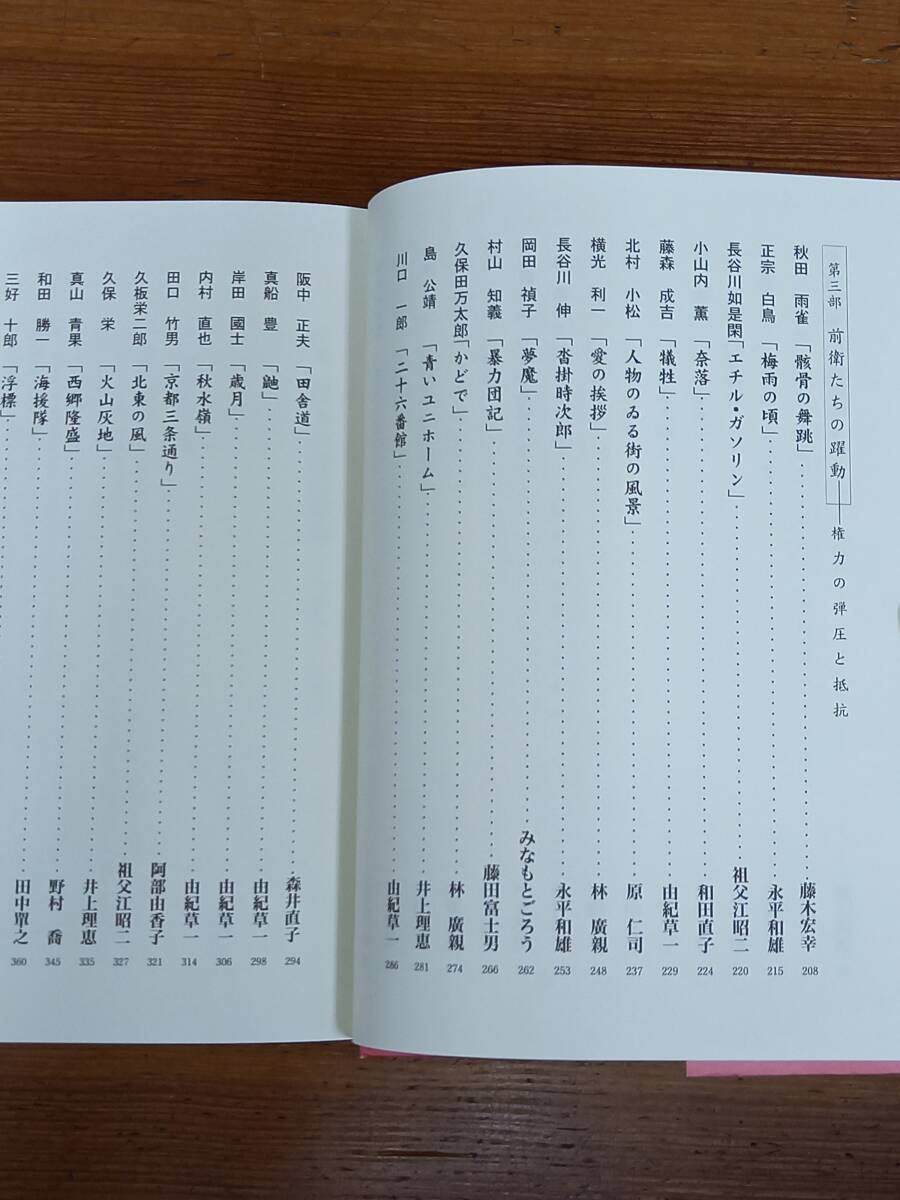 第三部 前衛たちの躍動――権力の弾圧と抵抗
秋田 雨雀「骸骨の舞跳」……藤木宏幸 208
正宗 白鳥「梅雨の頃」……永平和雄 215
長谷川如是閑「エチル・ガソリン」……祖父江昭二 220
小山内 薫「奈落」……和田直子 224
藤森 成吉「犠牲」……由紀草一 229
北村 小松「人物のゐる街の風景」……原 仁司 237
横光 利一「愛の挨拶」……林 廣親 248
長谷川 伸「沓掛時次郎」……永平和雄 253
岡田 禎子「夢魔」……みなもとごろう 262
村山 知義「暴力団記」……藤田富士男 266
久保田万太郎「かどで」……林 廣親 274
島 公靖「青いユニホーム」……井上理恵 281
川口 一郎「二十六番館」……由紀草一 286
阪中 正夫「田舎道」……森井直子 294
真船 豊「鼬」……由紀草一 298
岸田 國士「歳月」……由紀草一 306
内村 直也「秋水嶺」……由紀草一 314
田口 竹男「京都三条通り」……阿部由香子 321
久板栄二郎「北東の風」……祖父江昭二 327
久保 栄「火山灰地」……井上理恵 335
真山 青果「西郷隆盛」……野村 喬 345
和田 勝一「海援隊」……田中單之 360
三好 十郎「浮標」……